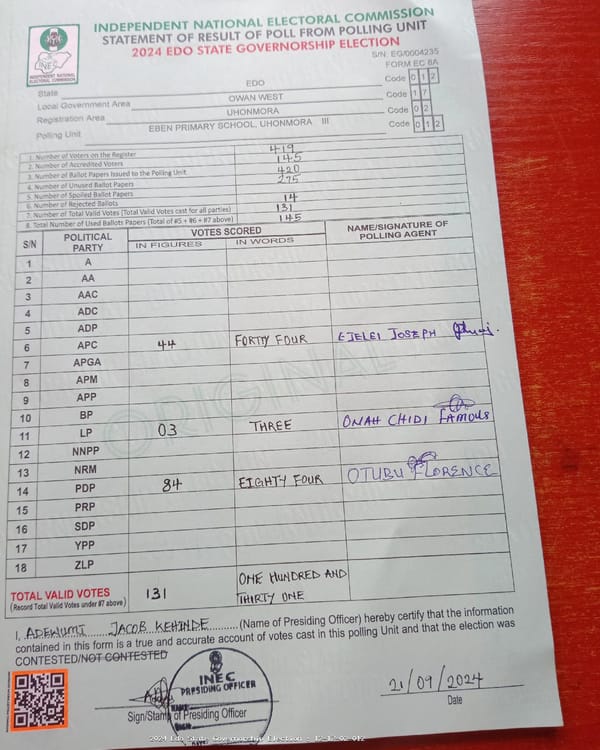 INDEPENDENT NATIONAL ELECTORAL COMMISSION
STATEMENT OF RESULT OF POLL FROM POLLING UNIT
2024 EDO STATE GOVERNORSHIP ELECTION
S/N: EG/0004235
FORM EC 8A
INEC
INDEPENDENT NATIONAL ELECTORAL COMMISSION
State EDO Code 0 1 2
Local Government Area OWAN WEST Code 1 7
Registration Area UHONMORA Code 0 2
Polling Unit EBEN PRIMARY SCHOOL, UHONMORA III Code 0 1 2
1. Number of Voters on the Register 419
2. Number of Accredited Voters 145
3. Number of Ballot Papers Issued to the Polling Unit 420
4. Number of Unused Ballot Papers 275
5. Number of Spoiled Ballot Papers
6. Number of Rejected Ballots 14
7. Number of Total Valid Votes (Total Valid Votes cast for all parties) 131
8. Total Number of Used Ballots Papers (Total of #5 + #6 + #7 above) 145
S/N POLITICAL PARTY VOTES SCORED NAME/SIGNATURE OF POLLING AGENT
IN FIGURES IN WORDS
1 A
2 AA
3 AAC
4 ADC
5 ADP
6 APC 44 FORTY FOUR EJELEI JOSEPH
7 APGA
8 APM
9 APP
10 BP
11 LP 03 THREE ONAH CHIDI FAMOUS
12 NNPP
13 NRM
14 PDP 84 EIGHTY FOUR OTUBU FLORENCE
15 PRP
16 SDP
17 YPP
18 ZLP
ORIGINAL
TOTAL VALID VOTES 131 ONE HUNDRED AND
(Record Total Valid Votes under #7 above) THIRTY ONE
I, ADEWUMI JACOB KEHINDE (Name of Presiding Officer) hereby certify that the information
contained in this form is a true and accurate account of votes cast in this polling Unit and that the election was
CONTESTED/NOT CONTESTED
INEC
PRESIDING OFFICER
21/09/2024
Sign/Stamp of Presiding Officer
Date
2024 Edo State Governorship Election - 12-17-02-012